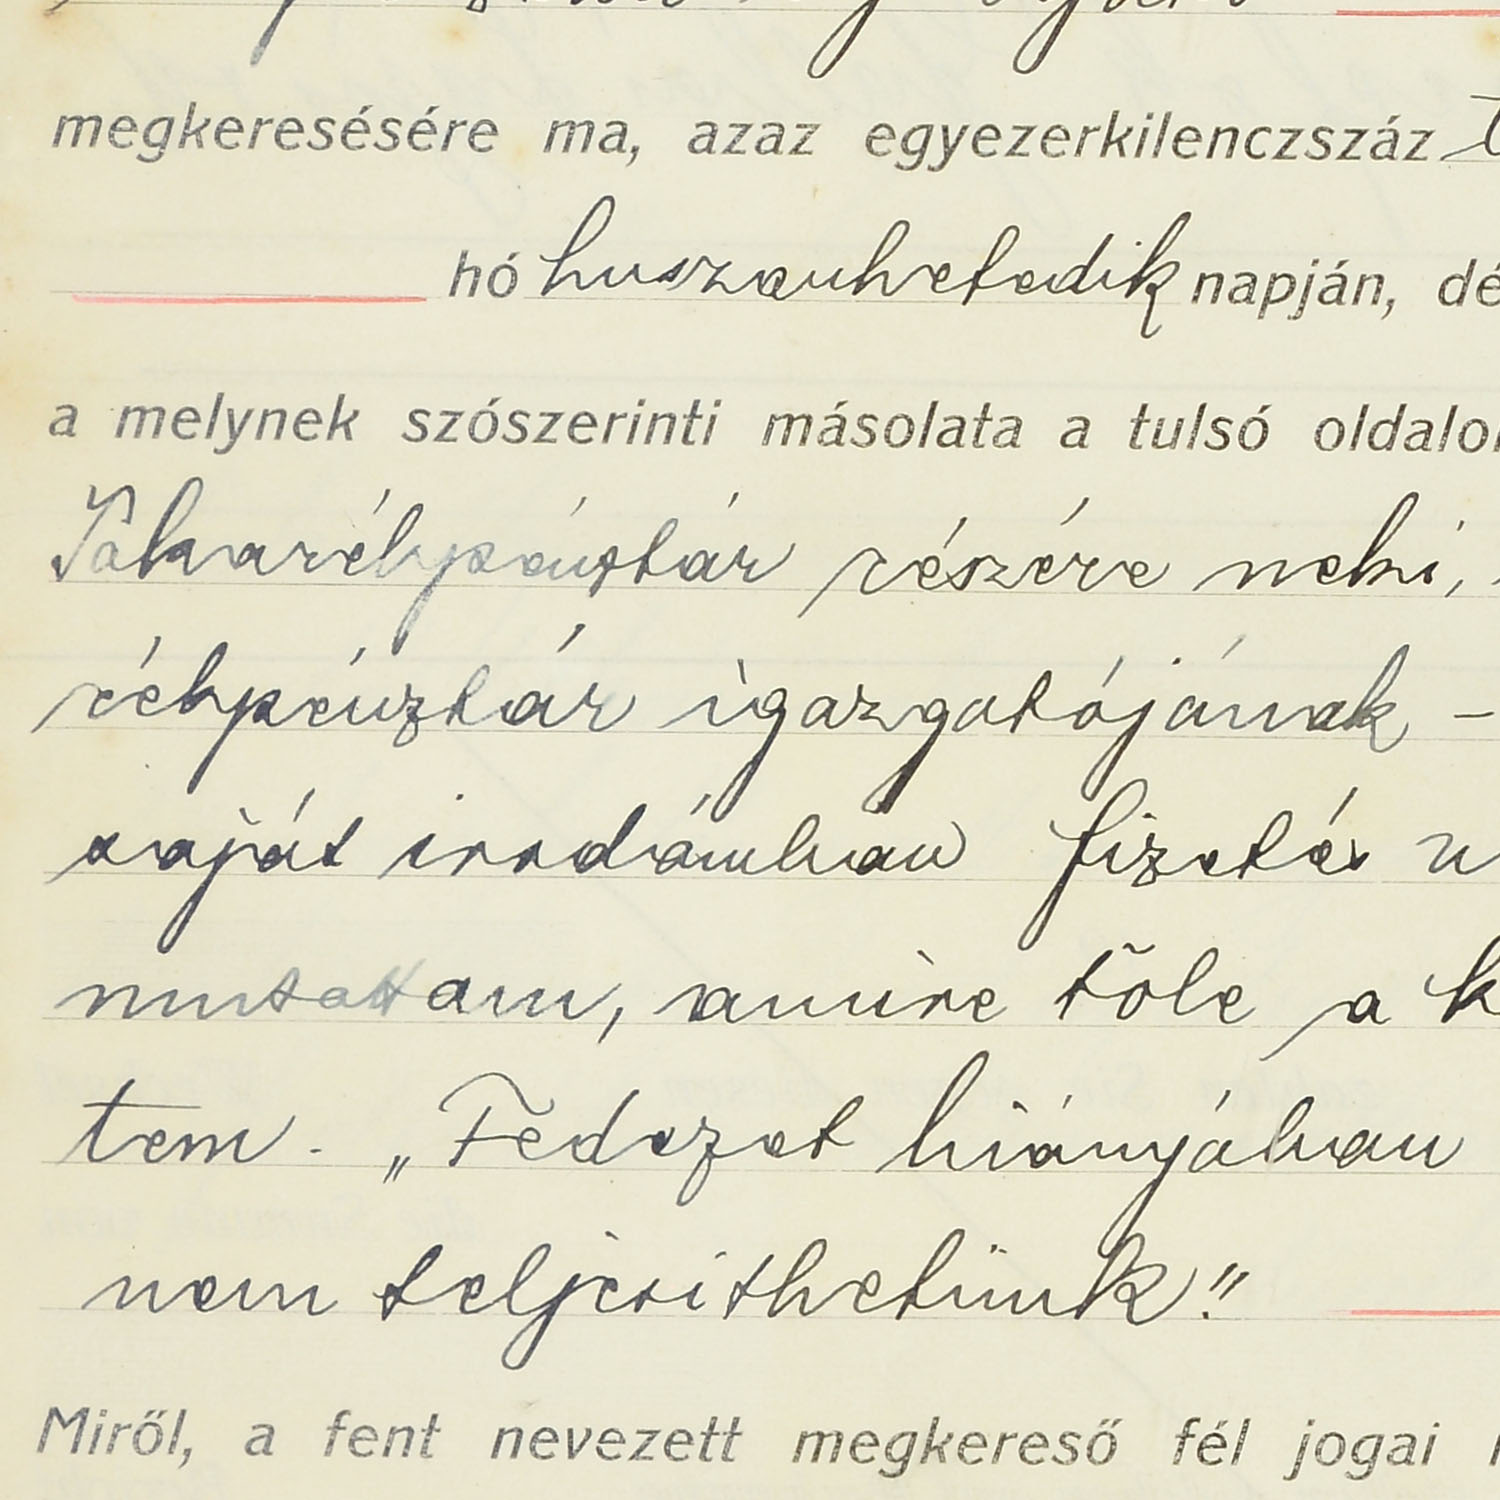 megkeresésére ma, azaz egyezerkilenczszáz
hó huszonhetedik napján, dé
a melynek szószerinti másolata a tulsó oldalon
Takarékpénztár részére neki,
rékpénztár igazgatójának –
saját irodámban fizetés v
mutattam, amire tőle a k
tem. „Fedezet hiányában
nem teljesithetünk!"
Miről, a fent nevezett megkereső fél jogai